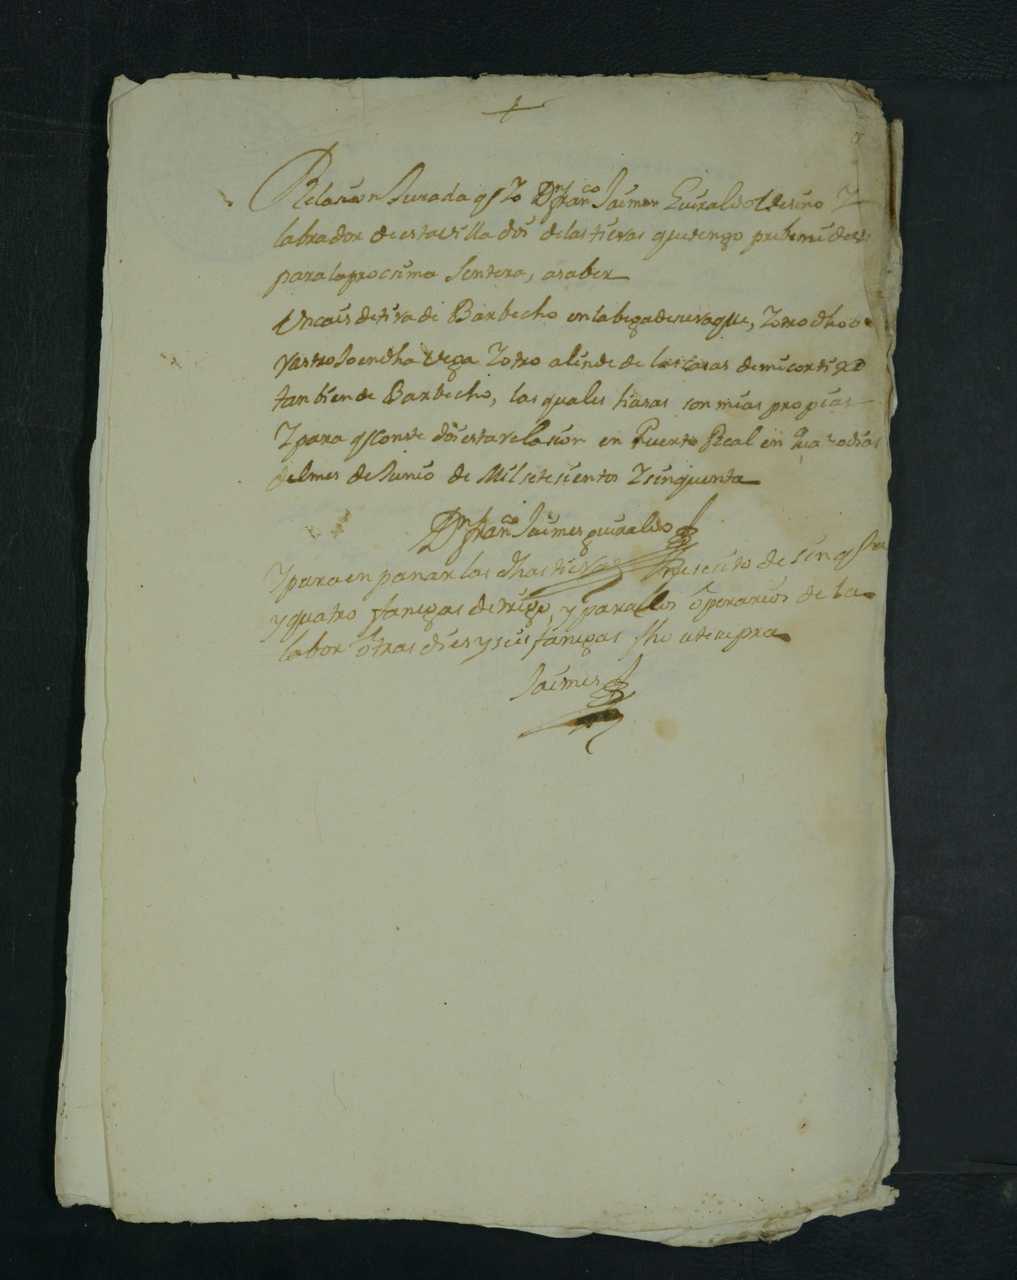 +
Relasion Jurada q Yo Dn Franco Jaimes Guiraldo Vesino Y
labrador de esta villa doi de las tieras que tengo
para la procsima Sentera, a saber
Un cais de tiera de Barbecho en la bega de, Y otro dho
Rastrojo en dha Vega Y otro a linde de las casas de mi cortixo
tanbien de Barbecho, las quales tieras son mias propias
Y para q Conste doi esta relasion en Puerto Real en dias
del mes de Junio de Mil setesientos Y sinquenta
Dn Franco Jaimes guiraldo
Y para en panar las dhas tieras nesesito de sinq
y quatro fanegas de trigo, y para los operarios de la
labor otras dies y seis fanegas fho ut supra
Jaimes